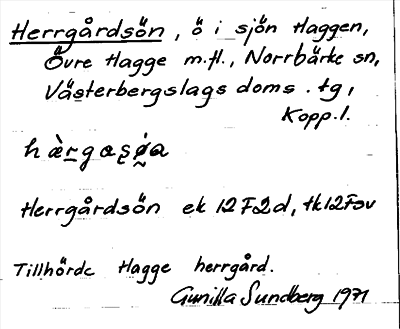 Herrgårdsön, ö i sjön Haggen,
Övre Hagge m.fl., Norrbärke sn,
Västerbergslags doms. tg,
Kopp.l.
hàrgaşǿa
Herrgårdsön ek 12F2d, tk12Fsv
Tillhörde Hagge herrgård.
Gunilla Sundberg 1971